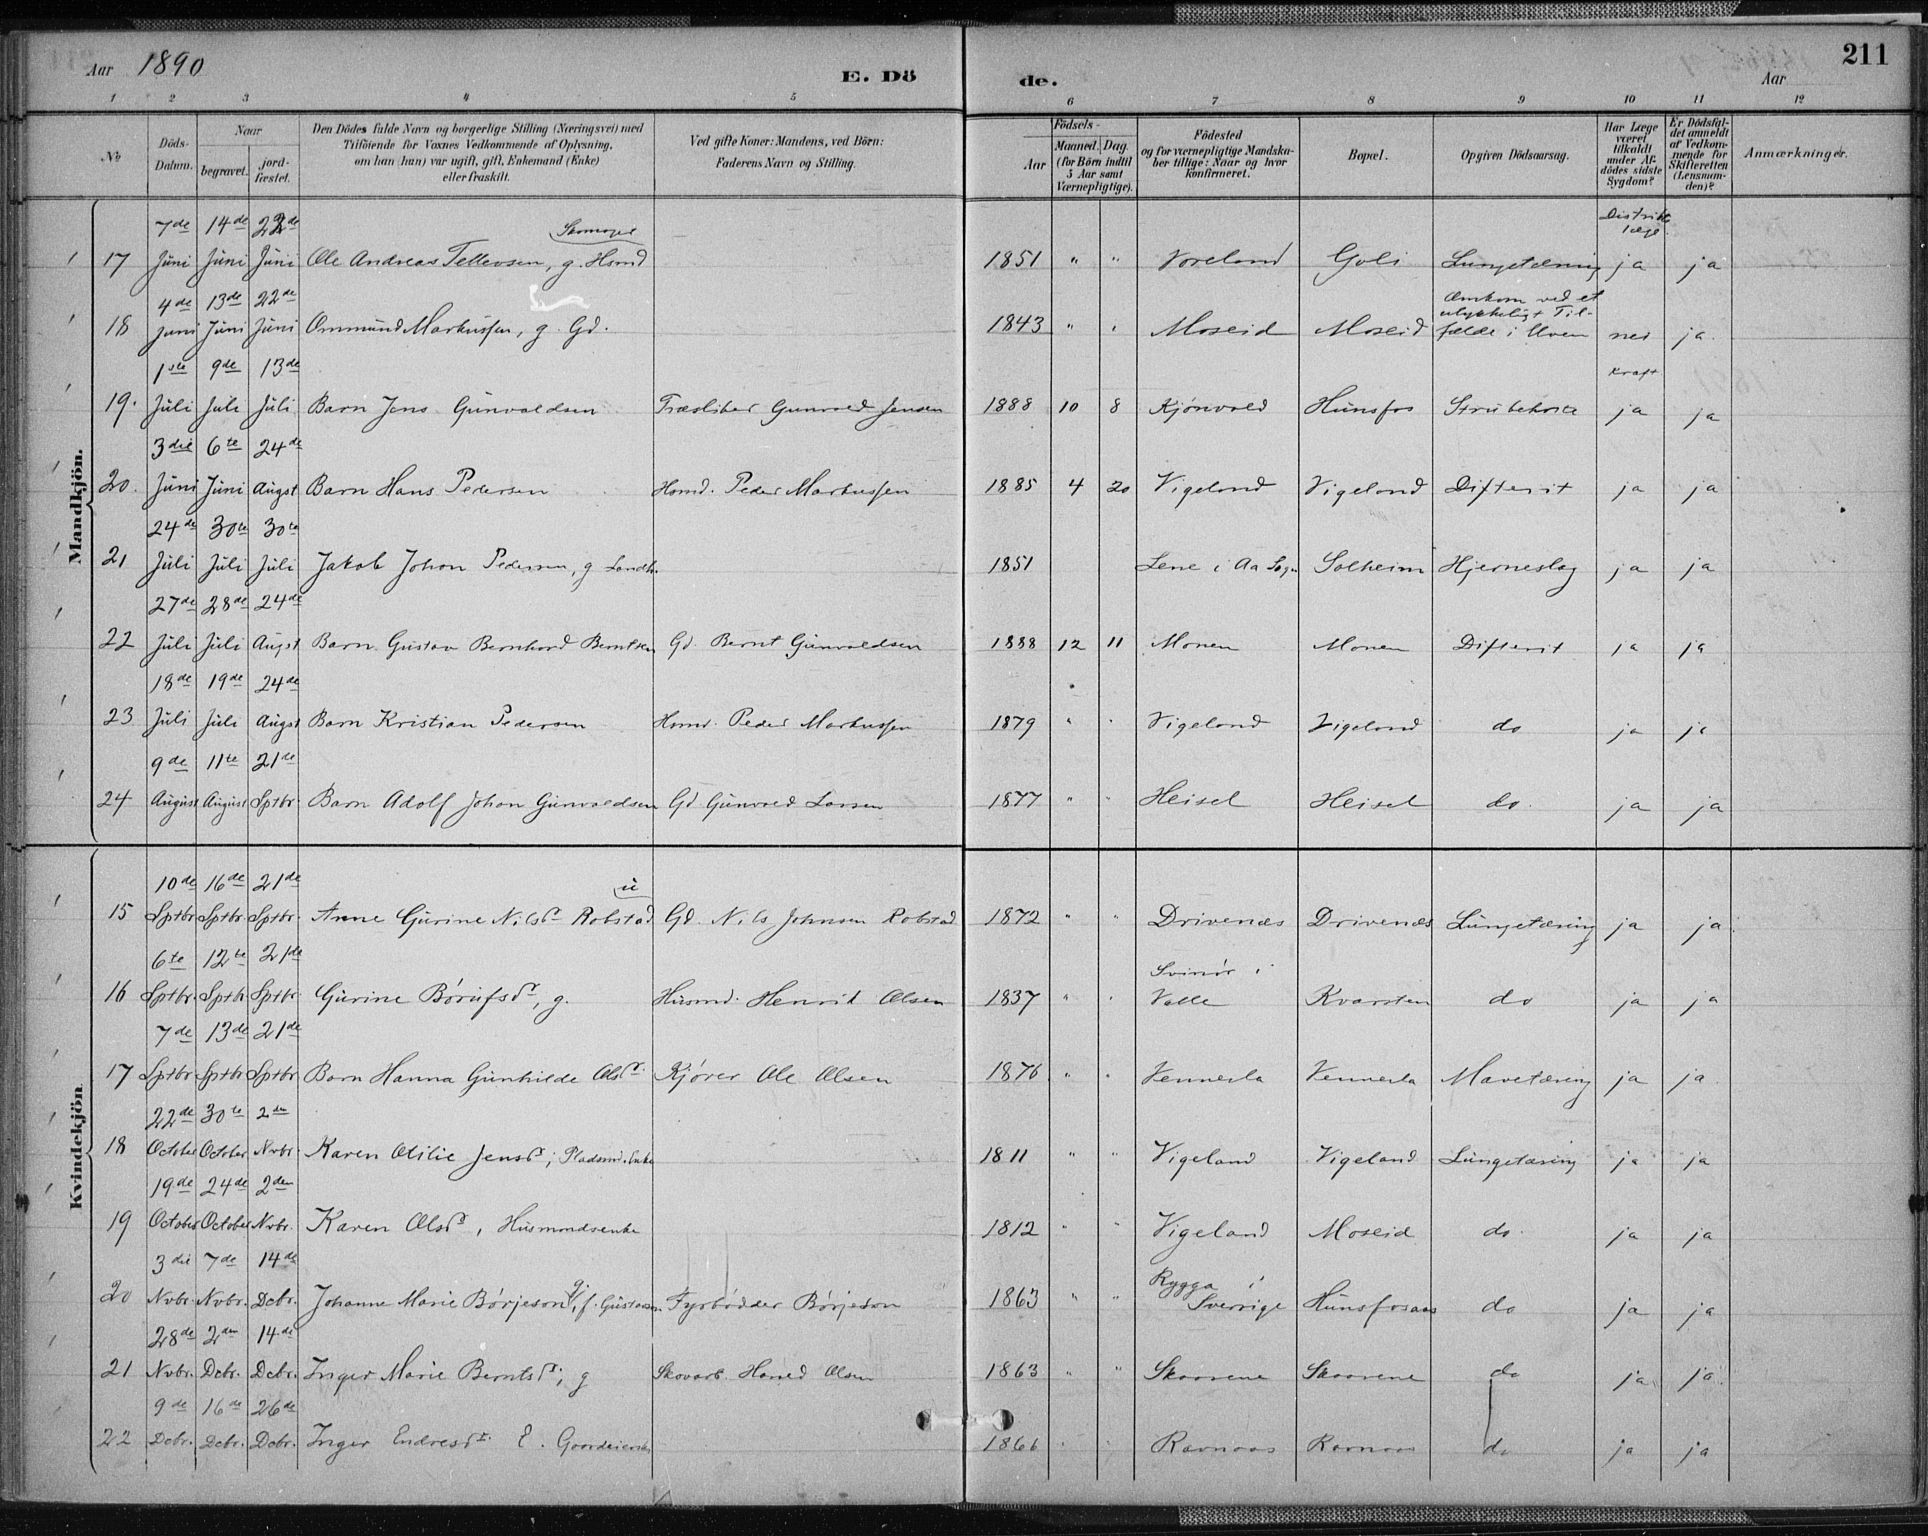 Aar 1890
E. Dö
de.
Aar
211
1 2 3 4 5 6 7 8 9 10 11 12
No
Döds-Datum.
Naar
begravet.
jord-fæstet.
Den Dödes fulde Navn og borgerlige Stilling (Næringsvei) med
Tilföiende for Voxnes Vedkommende af Oplysning,
om han (hun) var ugift, gift, Enkemand (Enke)
eller fraskilt.
Ved gifte Koner: Mandens, ved Börn:
Faderens Navn og Stilling.
Födsels-
Aar
Maaned. Dag.
(for Börn indtil
5 Aar samt
Værnepligtige).
Födested
og for værnepligtige Mandska-
ber tillige: Naar og hvor
konfirmeret.
Bopæl.
Opgiven Dödsaarsag.
Har Læge
været
tilkaldt
under Af-
dødes sidste
Sygdom?
Er Dödsfal-
det anmeldt
af Vedkom-
mende for
Skifteretten
(Lensman-
den)?
Anmærkninger.
Mandkjön.
7de 14de 22de Distrikts
læge
17 Juni Juni Juni Ole Andreas Tellevsen, g. Hsmd 1851 " " Voreland Goli Lungetæring ja ja
4de 13de 22de Omkom ved et
ulykkeligt Til-
18 Juni Juni Juni Ommund Markussen, g. Gd. 1843 " " Moseid Moseid fælde i Elven nei ja.
1ste 9de 13de Kraft
19. Juli Juli Juli Barn Jens Gunvaldsen Træsliber Gunvald Jensen 1888 10 8 Kjönvold Hunsfos Strubehoste ja ja
3die 6te 24de
20. Juni Juni Augst Barn Hans Pedersen Hsmd. Peder Markussen 1885 4 20 Vigeland Vigeland Difterit ja ja
24de 30te 30te
21 Juli Juli Juli Jakob Johan Pedersen, g Landh. 1851 Lene i Aa Sogn Solheim Hjerneslag ja ja
27de 28de 24de
22 Juli Juli Augst Barn Gustav Bernhard Berntsen Gd. Bernt Gunvaldsen 1888 12 11 Monen Monen Difterit ja ja
18de 19de 24de
23 Juli Juli Augst Barn Kristian Pedersen Hsmd. Peder Markussen 1879 " " Vigeland Vigeland do ja ja
9de 11te 21de
24 August August Sptbr. Barn Adolf Johan Gunvaldsen Gd Gunvald Larsen 1877 " " Heisel Heisel do. ja ja
Kvindekjön
10de 16de 21de u
15 Sptbr. Sptbr. Sptbr. Anne Gurine Nilsdr Robstad Gd. Nils Johnsen Robstad 1872 " " Drivenæs Drivenæs Lungetæring ja ja
6te 12te 21de Svinör i
16 Sptbr. Sptbr Sptbr. Gurine Börufsdr, g. Husmd. Henrik Olsen 1837 " " Valle Kvarsten do ja ja
7de 13de 21de
17 Sptbr. Sptbr Sptbr Barn Hanna Gunhilde Olsdr Kjörer Ole Olsen 1876 " " Vennesla Vennesla Mavetæring ja ja
22de 30te 2den
18 October October Nvbr. Karen Otilie Jensdr, Pladsmd. Enke 1811 " " Vigeland Vigeland Lungetæring ja ja
19de 24de 2den
19 October October Nvbr. Karen Olsdr, Husmandsenke 1812 " " Vigeland Moseid do. ja ja
3die 7de 14de g. Rygga i
20 Nvbr. Nvbr. Dcbr. Johanne Marie Börjeson, f. Gustavsen Fyrbödder Börjeson 1863 " " Sverrige Hunsfosaas do ja ja
28de 2den 14de
21 Nvbr. Dcbr. Dcbr. Inger Marie Berntsdr, g Skovarb. Olsen 1863 " " Skaarene Skaarene do ja ja.
9de 16de 26de
22 Dcbr. Dcbr. Dcbr. Inger Endresdr E. 1866 " Ravnaas Ravnaas do ja ja